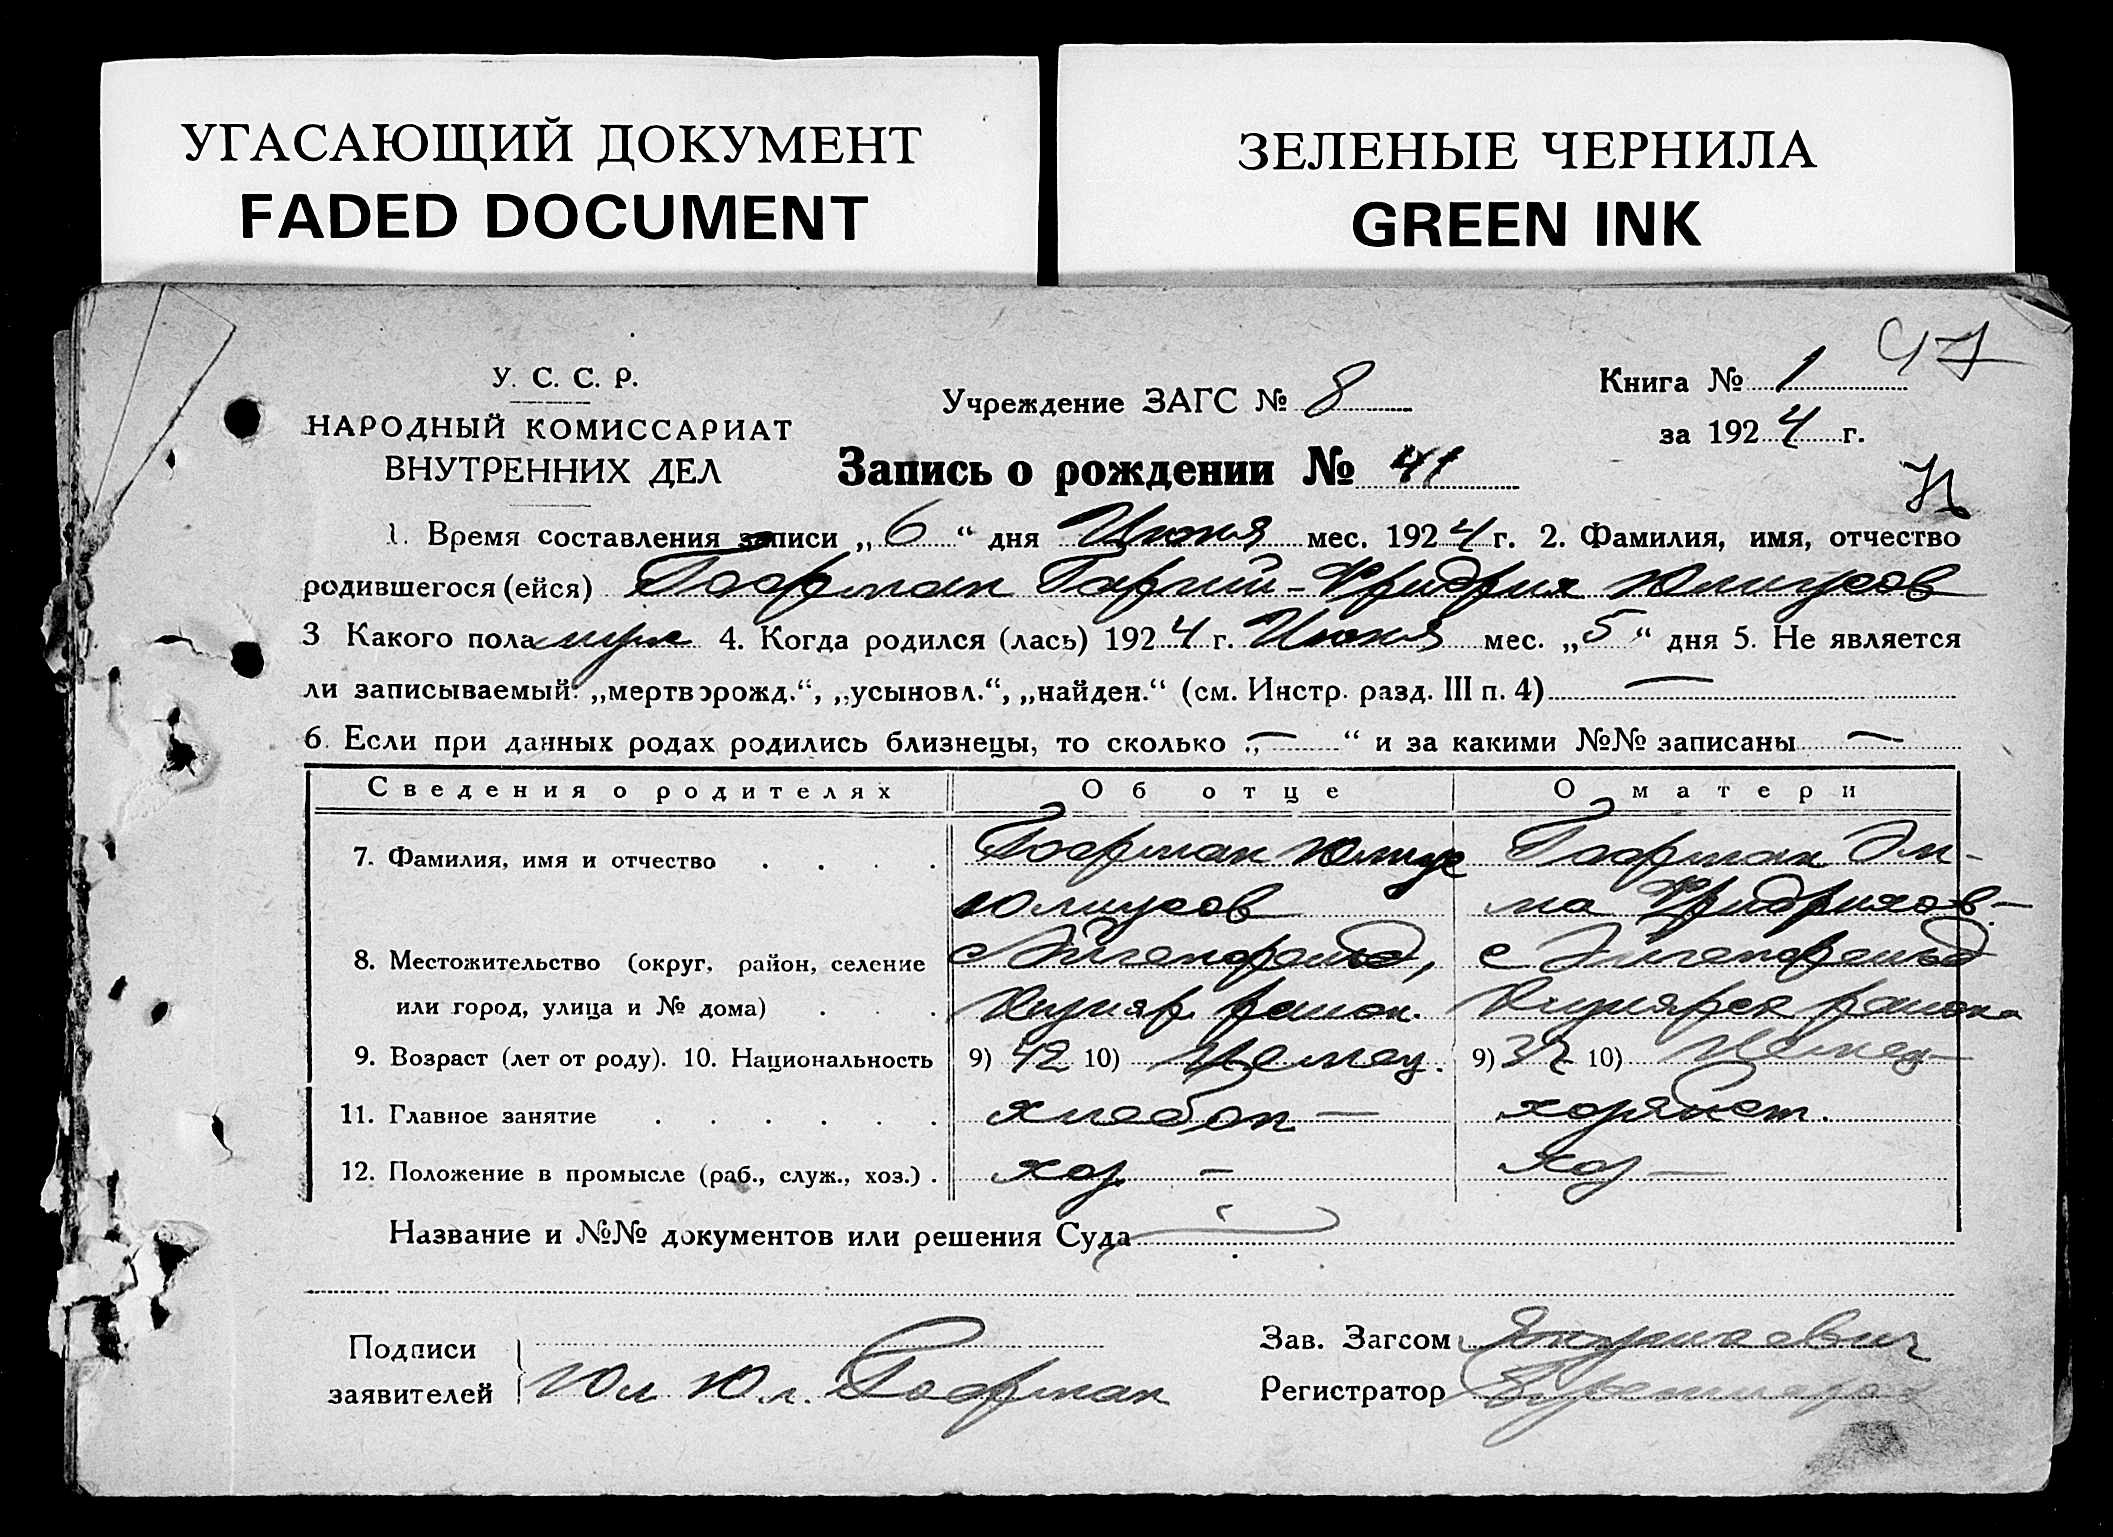 УГАСАЮЩИЙ ДОКУМЕНТ
FADED DOCUMENT
ЗЕЛЕНЫЕ ЧЕРНИЛА
GREEN INK
47
У. С. С. Р.
НАРОДНЫЙ КОМИССАРИАТ
ВНУТРЕННИХ ДЕЛ
Учреждение ЗАГС № 8
Книга № 1
за 1924 г.
Запись о рождении № 41
1. Время составления записи „6“ дня Июня мес. 1924 г. 2. Фамилия, имя, отчество
родившегося (ейся) Гофман Гарри-Фридрих Юлиусов
3 Какого пола муж 4. Когда родился (лась) 1924 г. Июня мес. „5“ дня 5. Не является
ли записываемый: „мертворожд.“, „усыновл.“, „найден.“ (см. Инстр. разд. III п. 4) —
6. Если при данных родах родились близнецы, то сколько „—“ и за какими №№ записаны —
Сведения о родителях Об отце О матери
7. Фамилия, имя и отчество . . . . Гофман Юлиус Гофман Эм-
Юлиусов ма Фридрихов-
8. Местожительство (округ, район, селение с Эйгенфельд, с Эйгенфельд
или город, улица и № дома) . . . район. района
9. Возраст (лет от роду). 10. Национальность 9) 42 10) Немец. 9) 37 10) Немец-
11. Главное занятие . . . . . . хлебоп —
12. Положение в промысле (раб., служ., хоз.) . хоз. — хоз —
Название и №№ документов или решения Суда
Подписи
заявителей Юл Юл. Гофман
Зав. Загсом
Регистратор